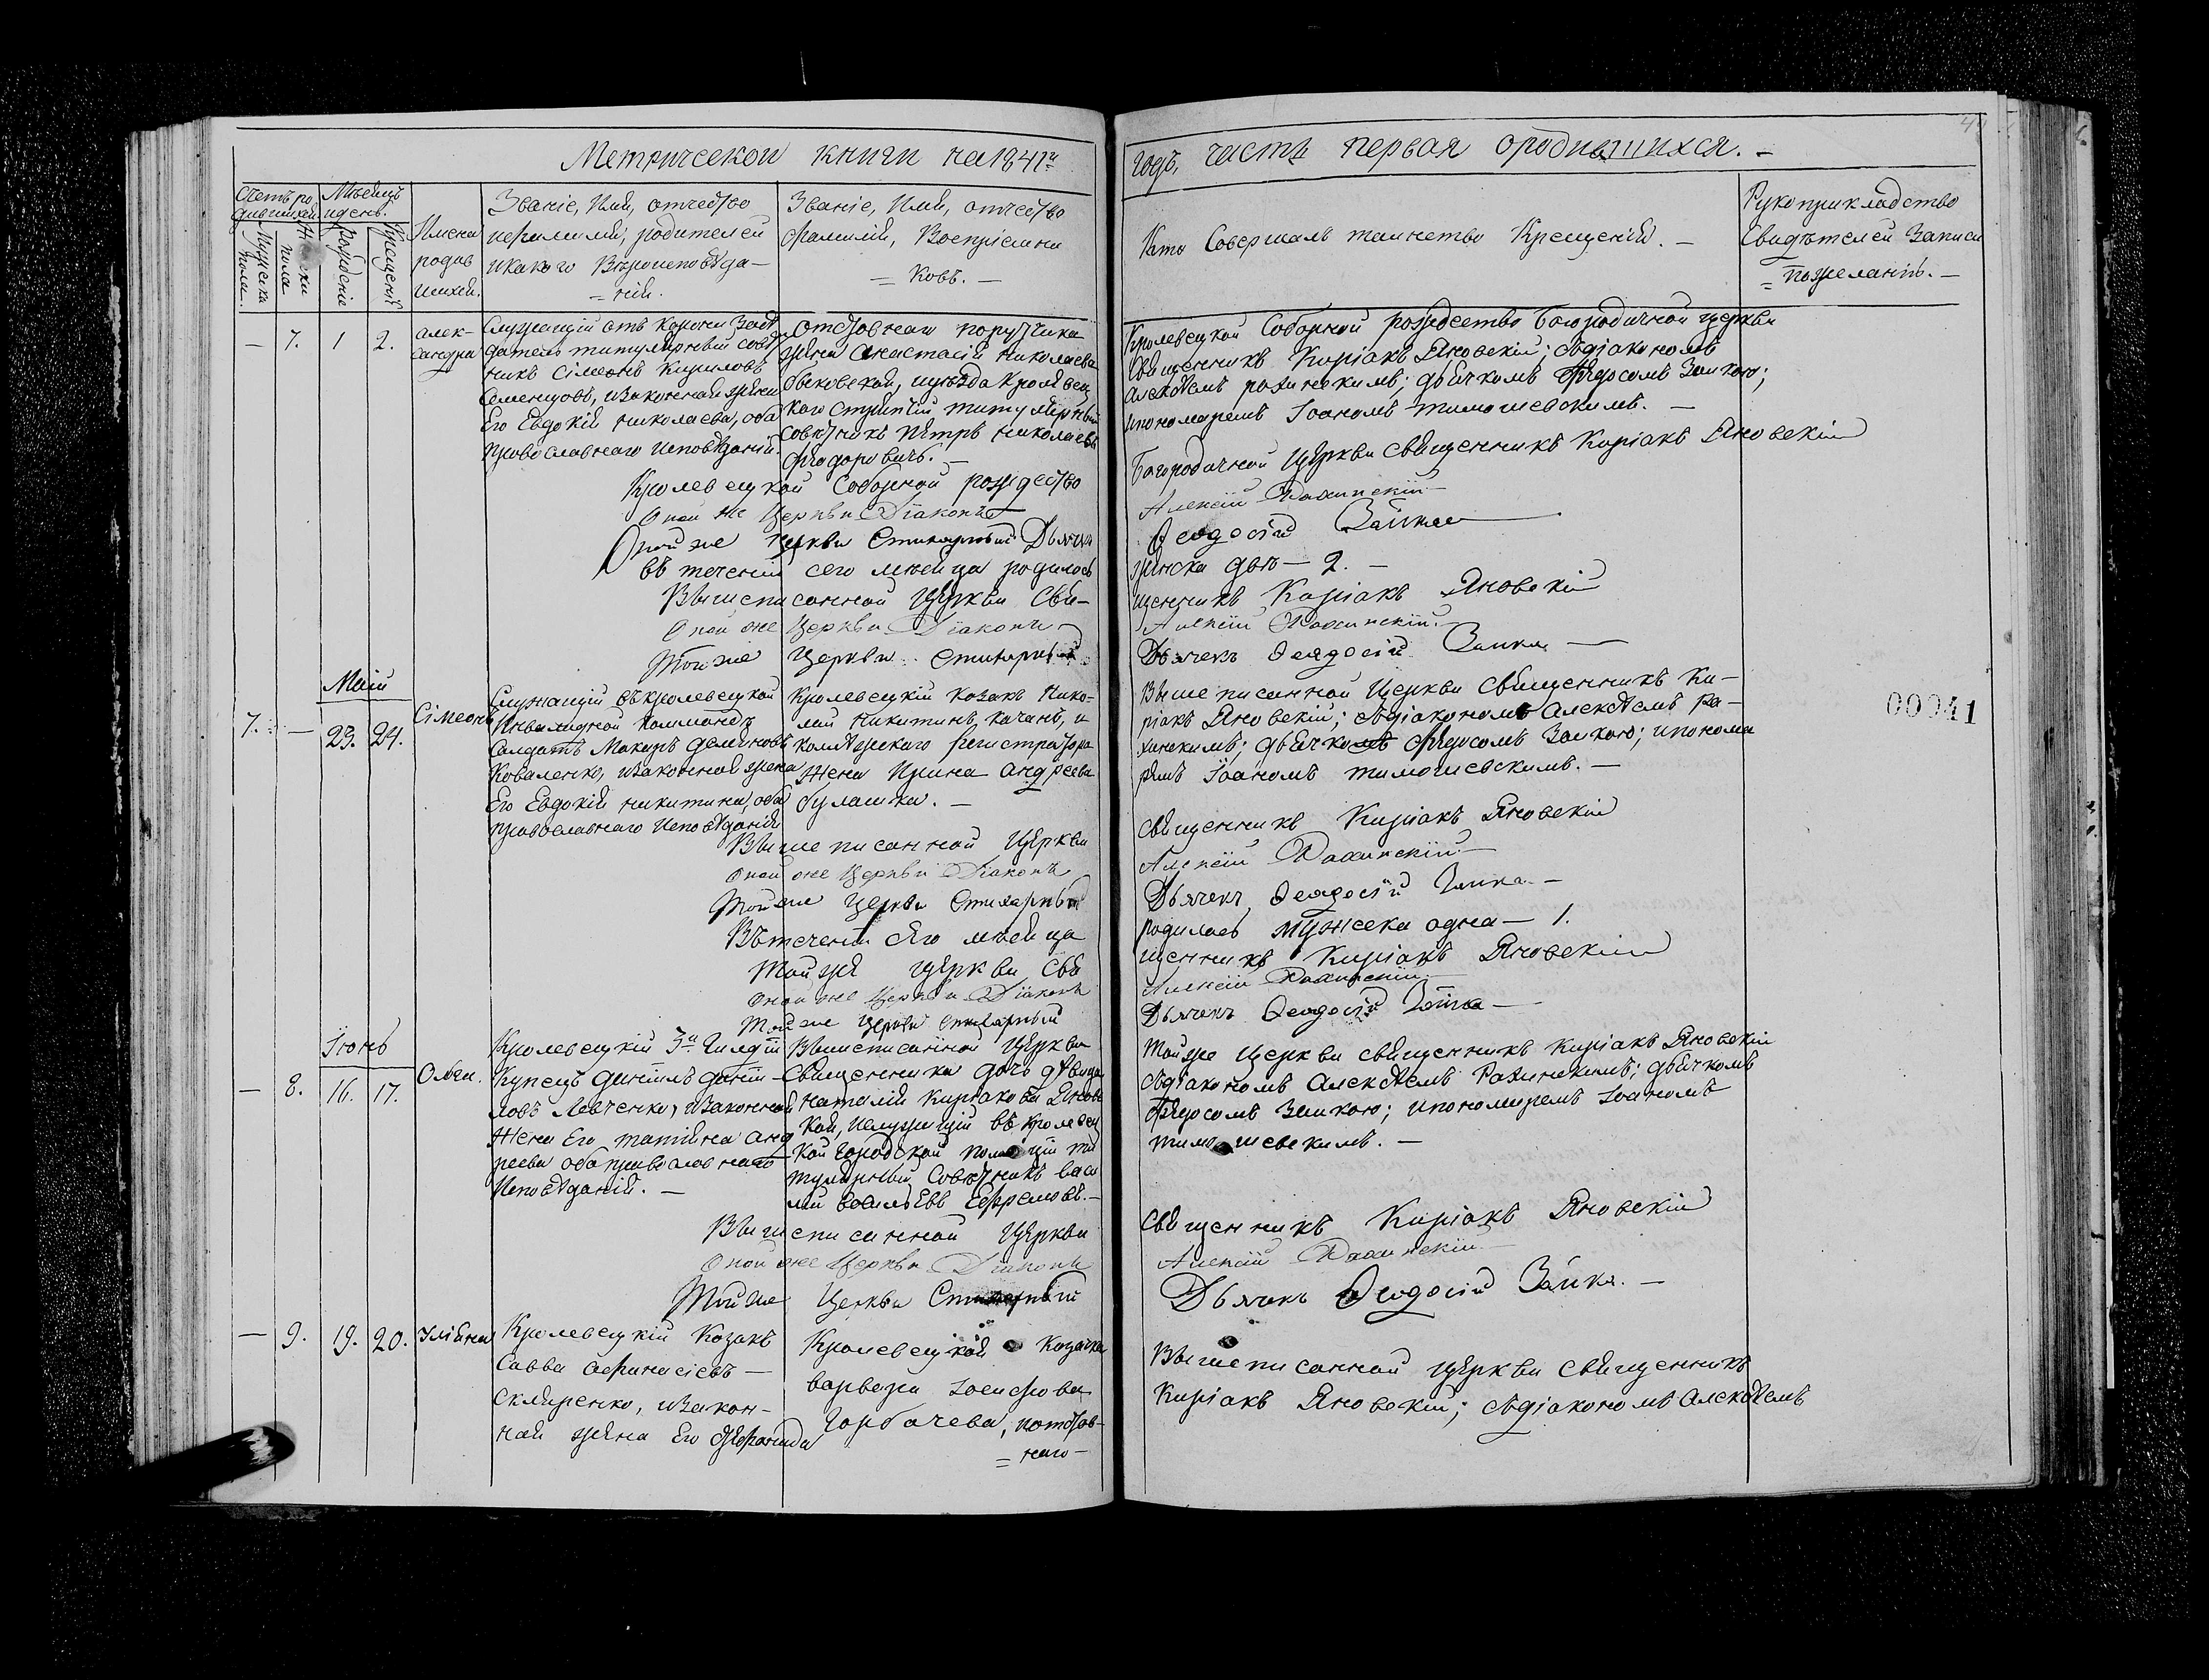 Метрической книги на 1841й
годъ, часть первая ородившихся. —
Счетъ ро
дившихся
Мѣсяцъ
идень.
Мужеска
пола.
пола
Рожденіе
Крещенія
Имена
родив
шихся.
Званіе, Имя, отчество
ифамилія, родителей
икакого Вѣроисповѣда—
= нія.
Званіе, Имя, отчество
фамилія, Воспріемни
= ковъ. —
Кто Совершалъ таинство Крещенія. —
Рукоприкладство
Свидѣтелей Записи
= пожеланію. —
— 7. 1 2.
алек-
сандра
датель титулярный совѣт
никъ Сімеонъ Кириловъ
Семенцовъ, изаконная жена
Его Евдокія николаева, оба
православнаго исповѣданія.
отставнаго поручика
жена Анастасія николаева
каго стряпчій титулярный
совѣтникъ Петръ николаевъ
Фіодоровичъ. —
Кролевецкой Соборной рождество Богородичной церкви
Священникъ Киріакъ Яновскій; сдіакономъ
алексѣемъ рахинскимъ; дьячкомъ Федосомъ Заикою;
ипономаремъ Іоаномъ тимошевскимъ. —
Кролевецкой Соборной рождество
Богородичной Церкви священникъ Киріакъ Яновскій
Оной же Церкви Діаконъ
Алексій Рахинскій
Оной же Церкви Стихарный Дьячок
Феодосій Зайка
въ теченіи сего мѣсяца родилось
женска двѣ — 2. —
Вышеписанной Церкви Свя—
щенникъ Киріакъ Яновскій
Оной же Церкви Діаконъ
Алексій Рахинскій.
Той же Церкви Стихарный
Дьячекъ Феодосій Заика —
Маій
7. — 23. 24.
Сімеонъ
Служащій въкролевецкой
Инвалидной Коммандѣ
Солдатъ Макаръ
Коваленко, изаконная жена
Его Евдокія никитина, оба
православнаго Исповѣданія
Кролевецкій козакъ Нико-
лай Никитинъ качанъ, и
колѣжскаго регистратора
Жена Ирина андреева
булашка. —
Вышеписанной Церкви Священникъ Ки—
ріакъ Яновскій; сдіакономъ алексѣемъ Ра—
хинскимъ; дьячкомъ Федосомъ Заикою; ипонома
ремъ Іоаномъ тимошевскимъ. —
Вышеписанной Церкви
священникъ Киріакъ Яновскій
Оной же Церкви Діаконъ
Алексій Рахинскій —
Той же Церкви Стихарный
Дьячекъ Феодосій Заика —
Втеченіи сего мѣсяца
родилось мужеска одна — 1.
Той же церкви свя
щенникъ Киріакъ Яновскій
Оной же Церкви Діаконъ
Алексій Рахинскій
Той же Церкви Стихарный
Дьячекъ Феодосій Заика —
Іюнь
— 8. 16. 17.
Ольга.
Кролевецкій 3й Гилдіи
Купецъ даніилъ даніи—
ловъ Левченко, изаконная
Жена Его татіана анд
реева оба православнаго
Исповѣданія. —
Вышеписанной Церкви
Священника дочь дѣвица
наталія Киріакова Яновс
кая, ислужащій въ кролевец
кой Городской полиціи ти
тулярный Совѣтникъ васи
лій васильевъ Ефремовъ. —
Той же Церкви священникъ Киріакъ Яновскій
сдіакономъ алексѣемъ Рахинскимъ; дьячкомъ
Федосомъ Заикою; ипономаремъ Іоаномъ
тимошевскимъ. —
Вышеписанной Церкви
священникъ Киріакъ Яновскій
Оной же Церкви Діаконъ
Алексій Рахинскій
Той же Церкви Стихарный
Дьячекъ Феодосій Зайка. —
— 9. 19. 20.
Уліяна
Кролевецкій Козакъ
Савва афанасіевъ —
Скляренко, изакон-
ная жена Его
Кролевецкая Козачка
варвара Іосифова
Горбачева, иотстав-
= наго —
Вышеписанной Церкви священникъ
Киріакъ Яновскій; сдіакономъ алексѣемъ
00941